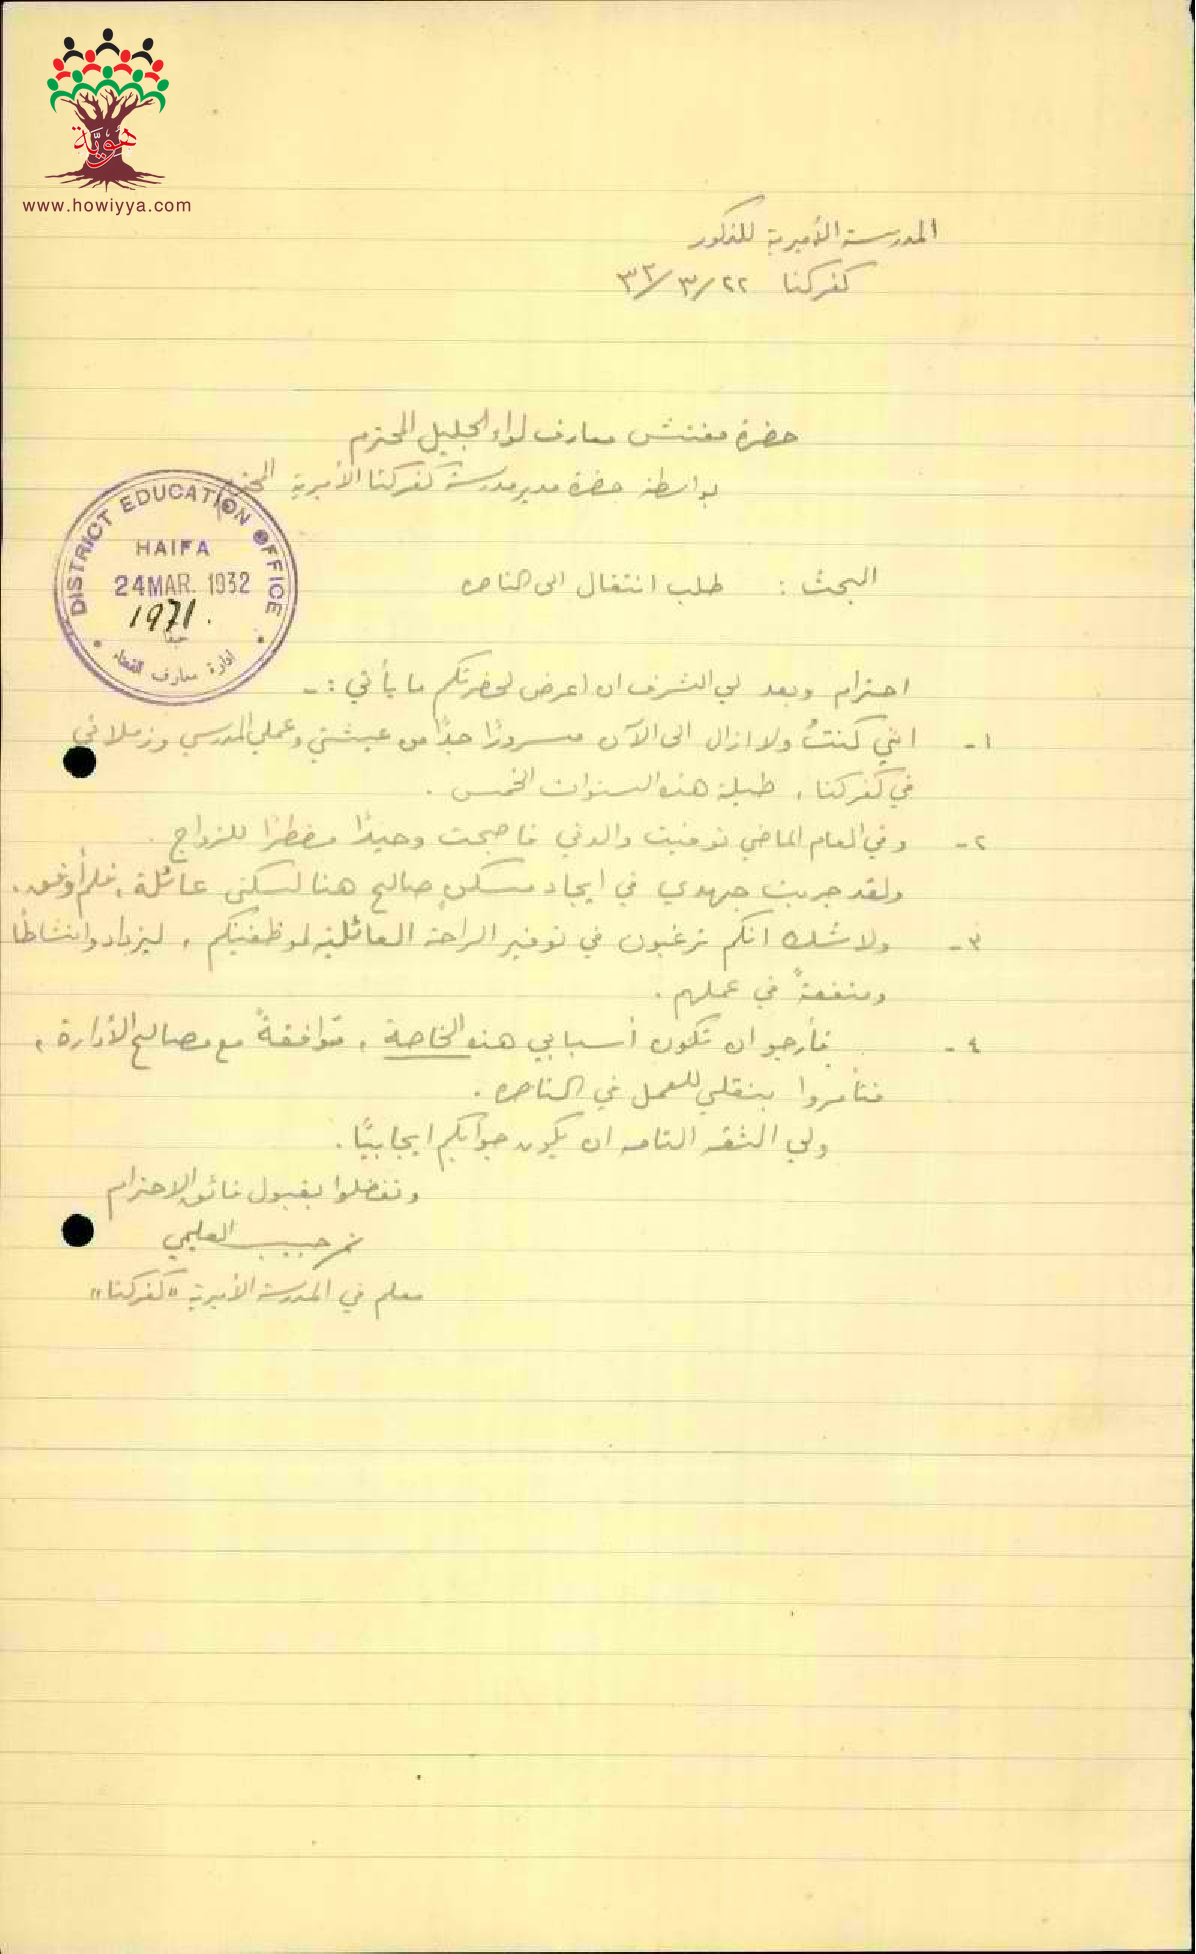 هوية
www.howiyya.com
المدرسة الأميرية للذكور
كفركنا ٢٢/٣/٣٢
حضرة مفتش معارف لواء الجليل المحترم
بواسطة حضرة مدير مدرسة كفركنا الأميرية المحترم
DISTRICT EDUCATION OFFICE
HAIFA
24 MAR. 1932
1971.
حيفا
ادارة معارف القضاء
البحث : طلب انتقال الى الناصره
احترام وبعد لي الشرف ان اعرض لحضرتكم ما يأتي :-
١- انني كنتُ ولا ازال الى الآن مسرورًا جدًا من عيشتي وعملي المدرسي وزملائي
في كفركنا، طيلة هذه السنوات الخمس .
٢- وفي العام الماضي توفيت والدتي فاصبحت وحيدًا مضطرًا للزواج .
ولقد جربت جهدي في ايجاد مسكنٍ صالح هنا لسكنى عائلة، فلم أوفق.
٣- ولا شك انكم ترغبون في توفير الراحة العائلية لموظفيكم ، ليزدادوا نشاطًا
ومنفعةً في عملهم .
٤- فأرجو ان تكون أسبابي هذه الخاصة ، موافقةً مع مصالح الأدارة ،
فتأمروا بنقلي للعمل في الناصره .
ولي الثقه التامه ان يكون جوابكم ايجابيًا .
وتفضلوا بقبول فائق الاحترام
حبيب العليمي
معلم في المدرسة الأميرية "كفركنا"